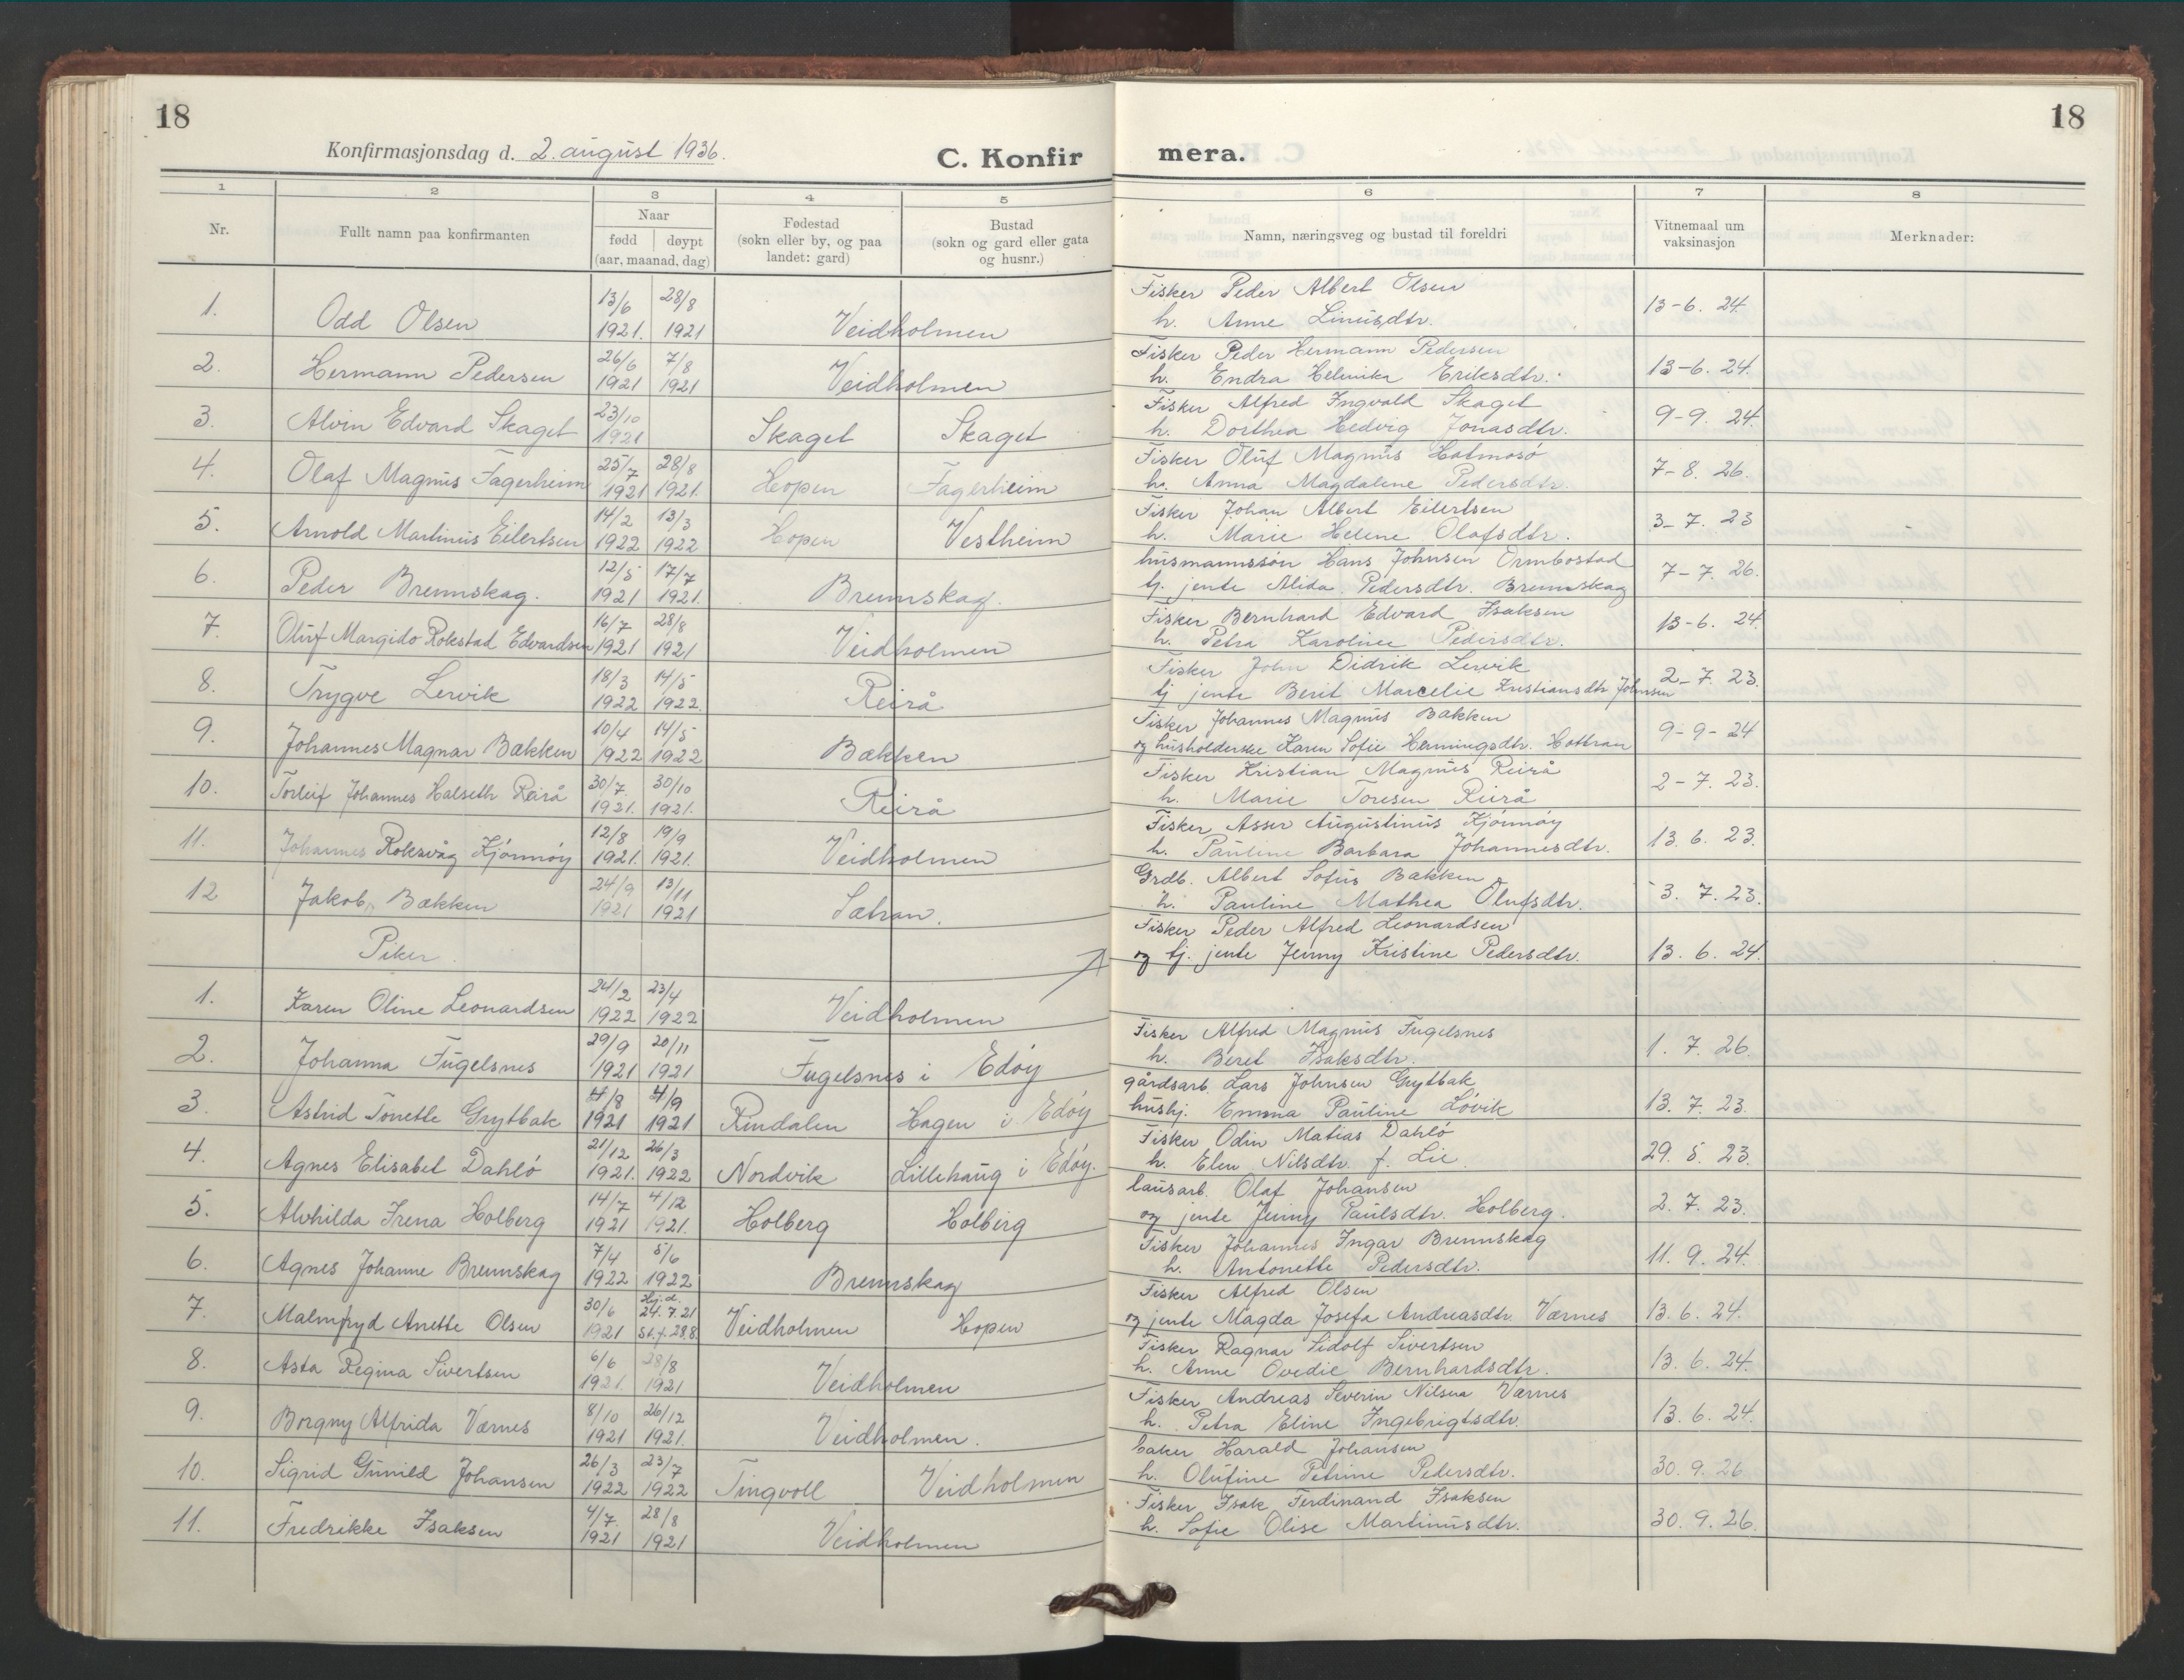 18
Konfirmasjonsdag d. 2. august 1936.
C. Konfirmera.
18
1 2 3 4 5 6 7 8
Nr.
Fullt namn paa konfirmanten
Naar
fødd døypt
(aar, maanad, dag)
Fødestad
(sokn eller by, og paa
landet: gard)
Bustad
(sokn og gard eller gata
og husnr.)
Namn, næringsveg og bustad til foreldri
Vitnemaal um
vaksinasjon
Merknader:
1. Odd Olsen 13/6 1921. 28/8 1921 Veidholmen
Fisker Peder Albert Olsen
h. Anne Linusdtr. 13-6. 24.
2. Hermann Pedersen 26/6 1921 7/8 1921 Veidholmen
Fisker Peder Hermann Pedersen
h. Endra Helmika Eriksdtr. 13-6. 24.
3. Alvin Edvard Skaget 23/10 1921 Skaget Skaget
Fisker Alfred Ingvald Skaget
h. Dorthea Hedvig Jonasdtr. 9-9. 24.
4. Olaf Magnus Fagerheim 25/7 1921 28/8 1921. Hopen Fagerheim
Fisker Oluf Magnus Hatmosø
h. Anna Magdalene Pedersdtr. 7-8. 26.
5. Arnold Martinus Eilertsen 14/2 1922 13/3 1922 Hopen Vestheim
Fisker Johan Albert Eilertsen
h. Marie Helene Olafsdtr. 3-7. 23
6. Peder Brennskag. 12/5 1921 17/7 1921. Brennskag.
husmannssøn Hans Johnsen Ormbostad
tj. jente Alida Pedersdtr. Brennskag 7-7. 26.
7. Oluf Margido Rokstad Edvardsen 16/7 1921 28/8 1921 Veidholmen
Fisker Bernhard Edvard Isaksen
h. Petra Karoline Pedersdtr. 13-6. 24.
8. Trygve Lervik 18/3 1922 14/5 1922. Reirå
Fisker John Didrik Lervik
tj jente Berit Marcelie Kristiansdtr Johnsen 2-7. 23.
9. Johannes Magnar Bækken 10/4 1922 14/5 1922 Bækken
Fisker Johannes Magnus Bækken
og husholderske Karen Sofie Henningsdtr. Hottran 9-9-24
10. Torleif Johannes Halseth Reirå 30/7. 1921. 30/10 1921. Reirå
Fisker Kristian Magnus Reirå
h. Marie Toresen Reirå 2-7. 23.
11. Johannes Roksvåg Kjønnøy 12/8 1921. 19/9 1921. Veidholmen
Fisker Asser Augustinus Kjønnøy
h. Pauline Barbara Johannesdtr. 13. 6. 23.
12 Jakob Bækken 24/9 1921 13/11 1921 Sætran.
Grdb. Albert Sofus Bækken
h. Pauline Mathea Olufsdtr. 3. 7. 23.
Piker.
1. Karen Oline Leonardsen 24/2 1922 23/4 1922 Veidholmen
Fisker Peder Alfred Leonardsen
og tj. jente Jenny Kristine Pedersdtr. 13. 6. 24.
2. Johanna Fugelsnes 29/9 1921 20/11 1921 Fugelsnes i Edøy
Fisker Alfred Magnus Fugelsnes
h. Beret Isaksdtr. 1. 7. 26.
3. Astrid Tonette Grytbak 4/8 1921 4/9 1921 Rindalen Hagen i Edøy
gårdsarb. Lars Johnsen Grytbak
hushj. Emma Pauline Løvik 13. 7. 23.
4. Agnes Elisabet Dahlø 21/12 1921. 26/3 1922 Nordvik Lillehaug i Edøy.
Fisker Odin Matias Dahlø
h. Elen Nilsdtr. f. Lie. 29. 5. 23.
5. Alvhilda Irena Holberg 14/7 1921 4/12 1921. Holberg Holberg
lausarb. Olaf Johansen
og jente Jenny Paulsdtr. Holberg. 2. 7. 23.
6. Agnes Johanne Brennskag 7/4 1922 5/6 1922 Brennskag
Fisker Johannes Ingar Brennskag
h. Antonette Pedersdtr. 11. 9. 24.
7. Malmfryd Anette Olsen 30/6 1921 Hj. d. 24. 7. 21 St. f. 28.8. Veidholmen Hopen
Fisker Alfred Olsen
og jente Magda Josefa Andreasdtr Værnes 13. 6. 24.
8. Asta Regina Sivertsen 6/6 1921. 28/8 1921 Veidholmen
Fisker Ragnar Sidolf Sivertsen
h. Anne Ovedie Bernhardsdtr. 13. 6. 24.
9. Borgny Alfrida Værnes 8/10 1921 26/12 1921. Veidholmen.
Fisker Andreas Severin Nilsen Værnes
h. Petra Eline Ingebrigtsdtr. 13. 6. 24.
10. Sigrid Gunild Johansen 26/3 1922 23/7 1922 Tingvoll Veidholmen
baker Harald Johansen
h. Olufine Petrine Pedersdtr. 30. 9. 26
11. Fredrikke Isaksen 4/7. 1921 28/8 1921 Veidholmen
Fisker Isak Ferdinand Isaksen
h. Sofie Olise Martinusdtr. 30. 9. 26.